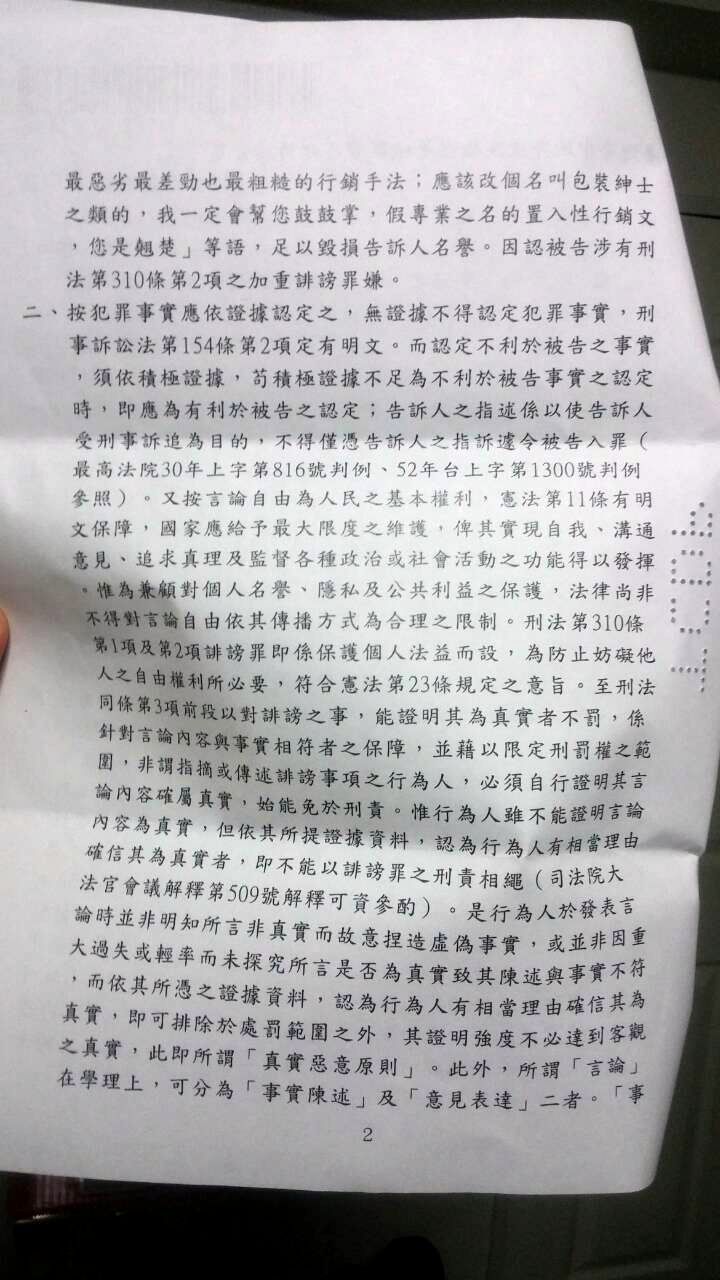 最惡劣最差勁也最粗糙的行銷手法；應該改個名叫包裝紳士
之類的，我一定會幫您鼓鼓掌，假專業之名的置入性行銷文
，您是翹楚」等語，足以毀損告訴人名譽。因認被告涉有刑
法第310條第2項之加重誹謗罪嫌。
二、按犯罪事實應依證據認定之，無證據不得認定犯罪事實，刑
事訴訟法第154條第2項定有明文。而認定不利於被告之事實
，須依積極證據，苟積極證據不足為不利於被告事實之認定
時，即應為有利於被告之認定；告訴人之指述係以使告訴人
受刑事訴追為目的，不得僅憑告訴人之指訴遽令被告入罪（
最高法院30年上字第816號判例、52年台上字第1300號判例
參照）。又按言論自由為人民之基本權利，憲法第11條有明
文保障，國家應給予最大限度之維護，俾其實現自我、溝通
意見、追求真理及監督各種政治或社會活動之功能得以發揮
。惟為兼顧對個人名譽、隱私及公共利益之保護，法律尚非
不得對言論自由依其傳播方式為合理之限制。刑法第310條
第1項及第2項誹謗罪即係保護個人法益而設，為防止妨礙他
人之自由權利所必要，符合憲法第23條規定之意旨。至刑法
同條第3項前段以對誹謗之事，能證明其為真實者不罰，係
針對言論內容與事實相符者之保障，並藉以限定刑罰權之範
圍，非謂指摘或傳述誹謗事項之行為人，必須自行證明其言
論內容確屬真實，始能免於刑責。惟行為人雖不能證明言論
內容為真實，但依其所提證據資料，認為行為人有相當理由
確信其為真實者，即不能以誹謗罪之刑責相繩（司法院大
法官會議解釋第509號解釋可資參酌）。是行為人於發表言
論時並非明知所言非真實而故意捏造虛偽事實，或並非因重
大過失或輕率而未探究所言是否為真實致其陳述與事實不符
，而依其所憑之證據資料，認為行為人有相當理由確信其為
真實，即可排除於處罰範圍之外，其證明強度不必達到客觀
之真實，此即所謂「真實惡意原則」。此外，所謂「言論」
在學理上，可分為「事實陳述」及「意見表達」二者。「事
2